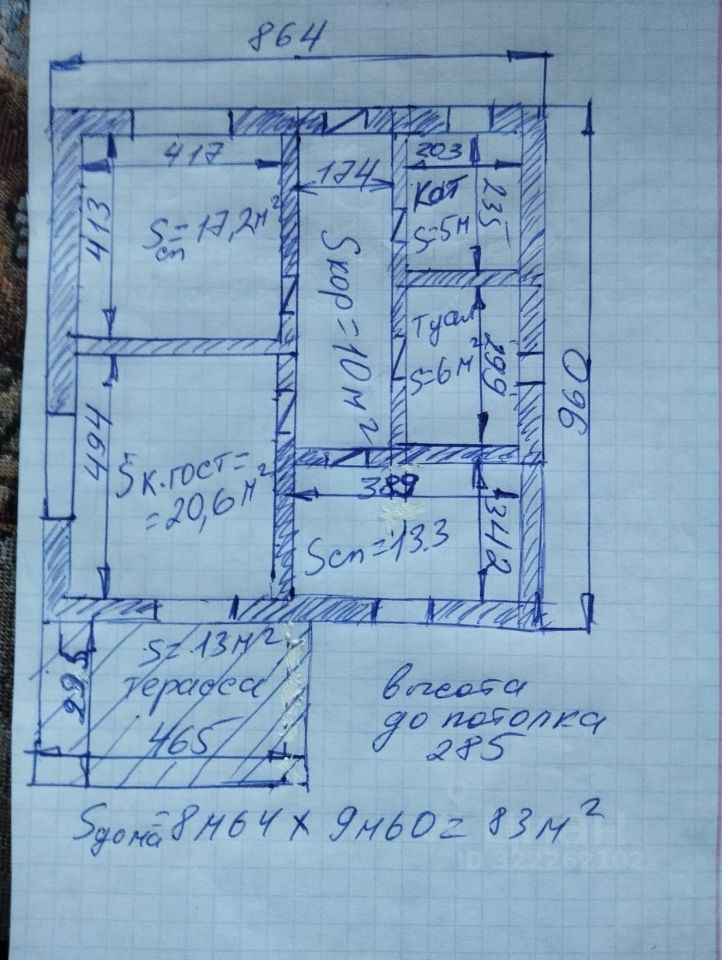 864
417
174
203
413
Sсп=17,2м²
Sкор=10м²
кот
S=5м
235
туал
S=6м²
299
960
494
Sк.гост=
=20,6м²
389
Sсп=13.3
342
S=13м²
терасса
295
465
высота
до потолка
285
Sдома=8м64 х 9м60=83м²
ID 322262102